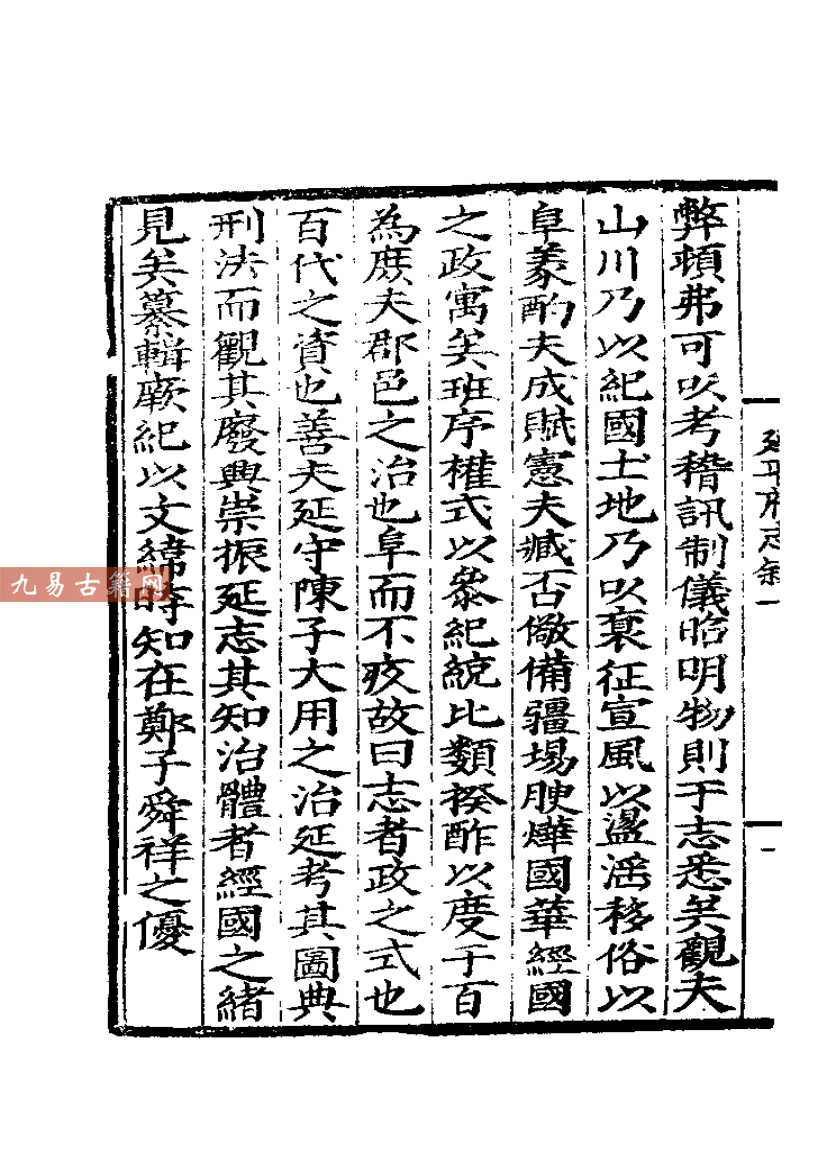 弊頓弗可以考稽訊制儀昭明物則于志悉矣觀夫
山川乃以紀國土地乃以裒征宣風以盪滛移俗以
阜豢酌夫成賦憲夫臧否儆備疆埸腴燁國華經國
之政寓矣班序權式以彖紀統比類揆酢以度于百
為庶夫郡邑之治也阜而不疚故曰志者政之式也
百代之資也善夫延守陳子大用之治延考其圖典
刑法而觀其廢興崇振延志其知治體者經國之緒
見矣纂輯厥紀以文緯時知在鄭子舜祥之優
延平府志叙
一
九易古籍网